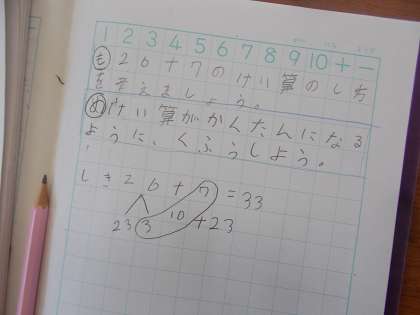 1 2 3 4 5 6 7 8 9 10 + −
も 26+7のけい算のしかた
を考えましょう。
め けい算がかんたんになる
ように、くふうしよう。
しき 26+7=33
10
23 3 +23